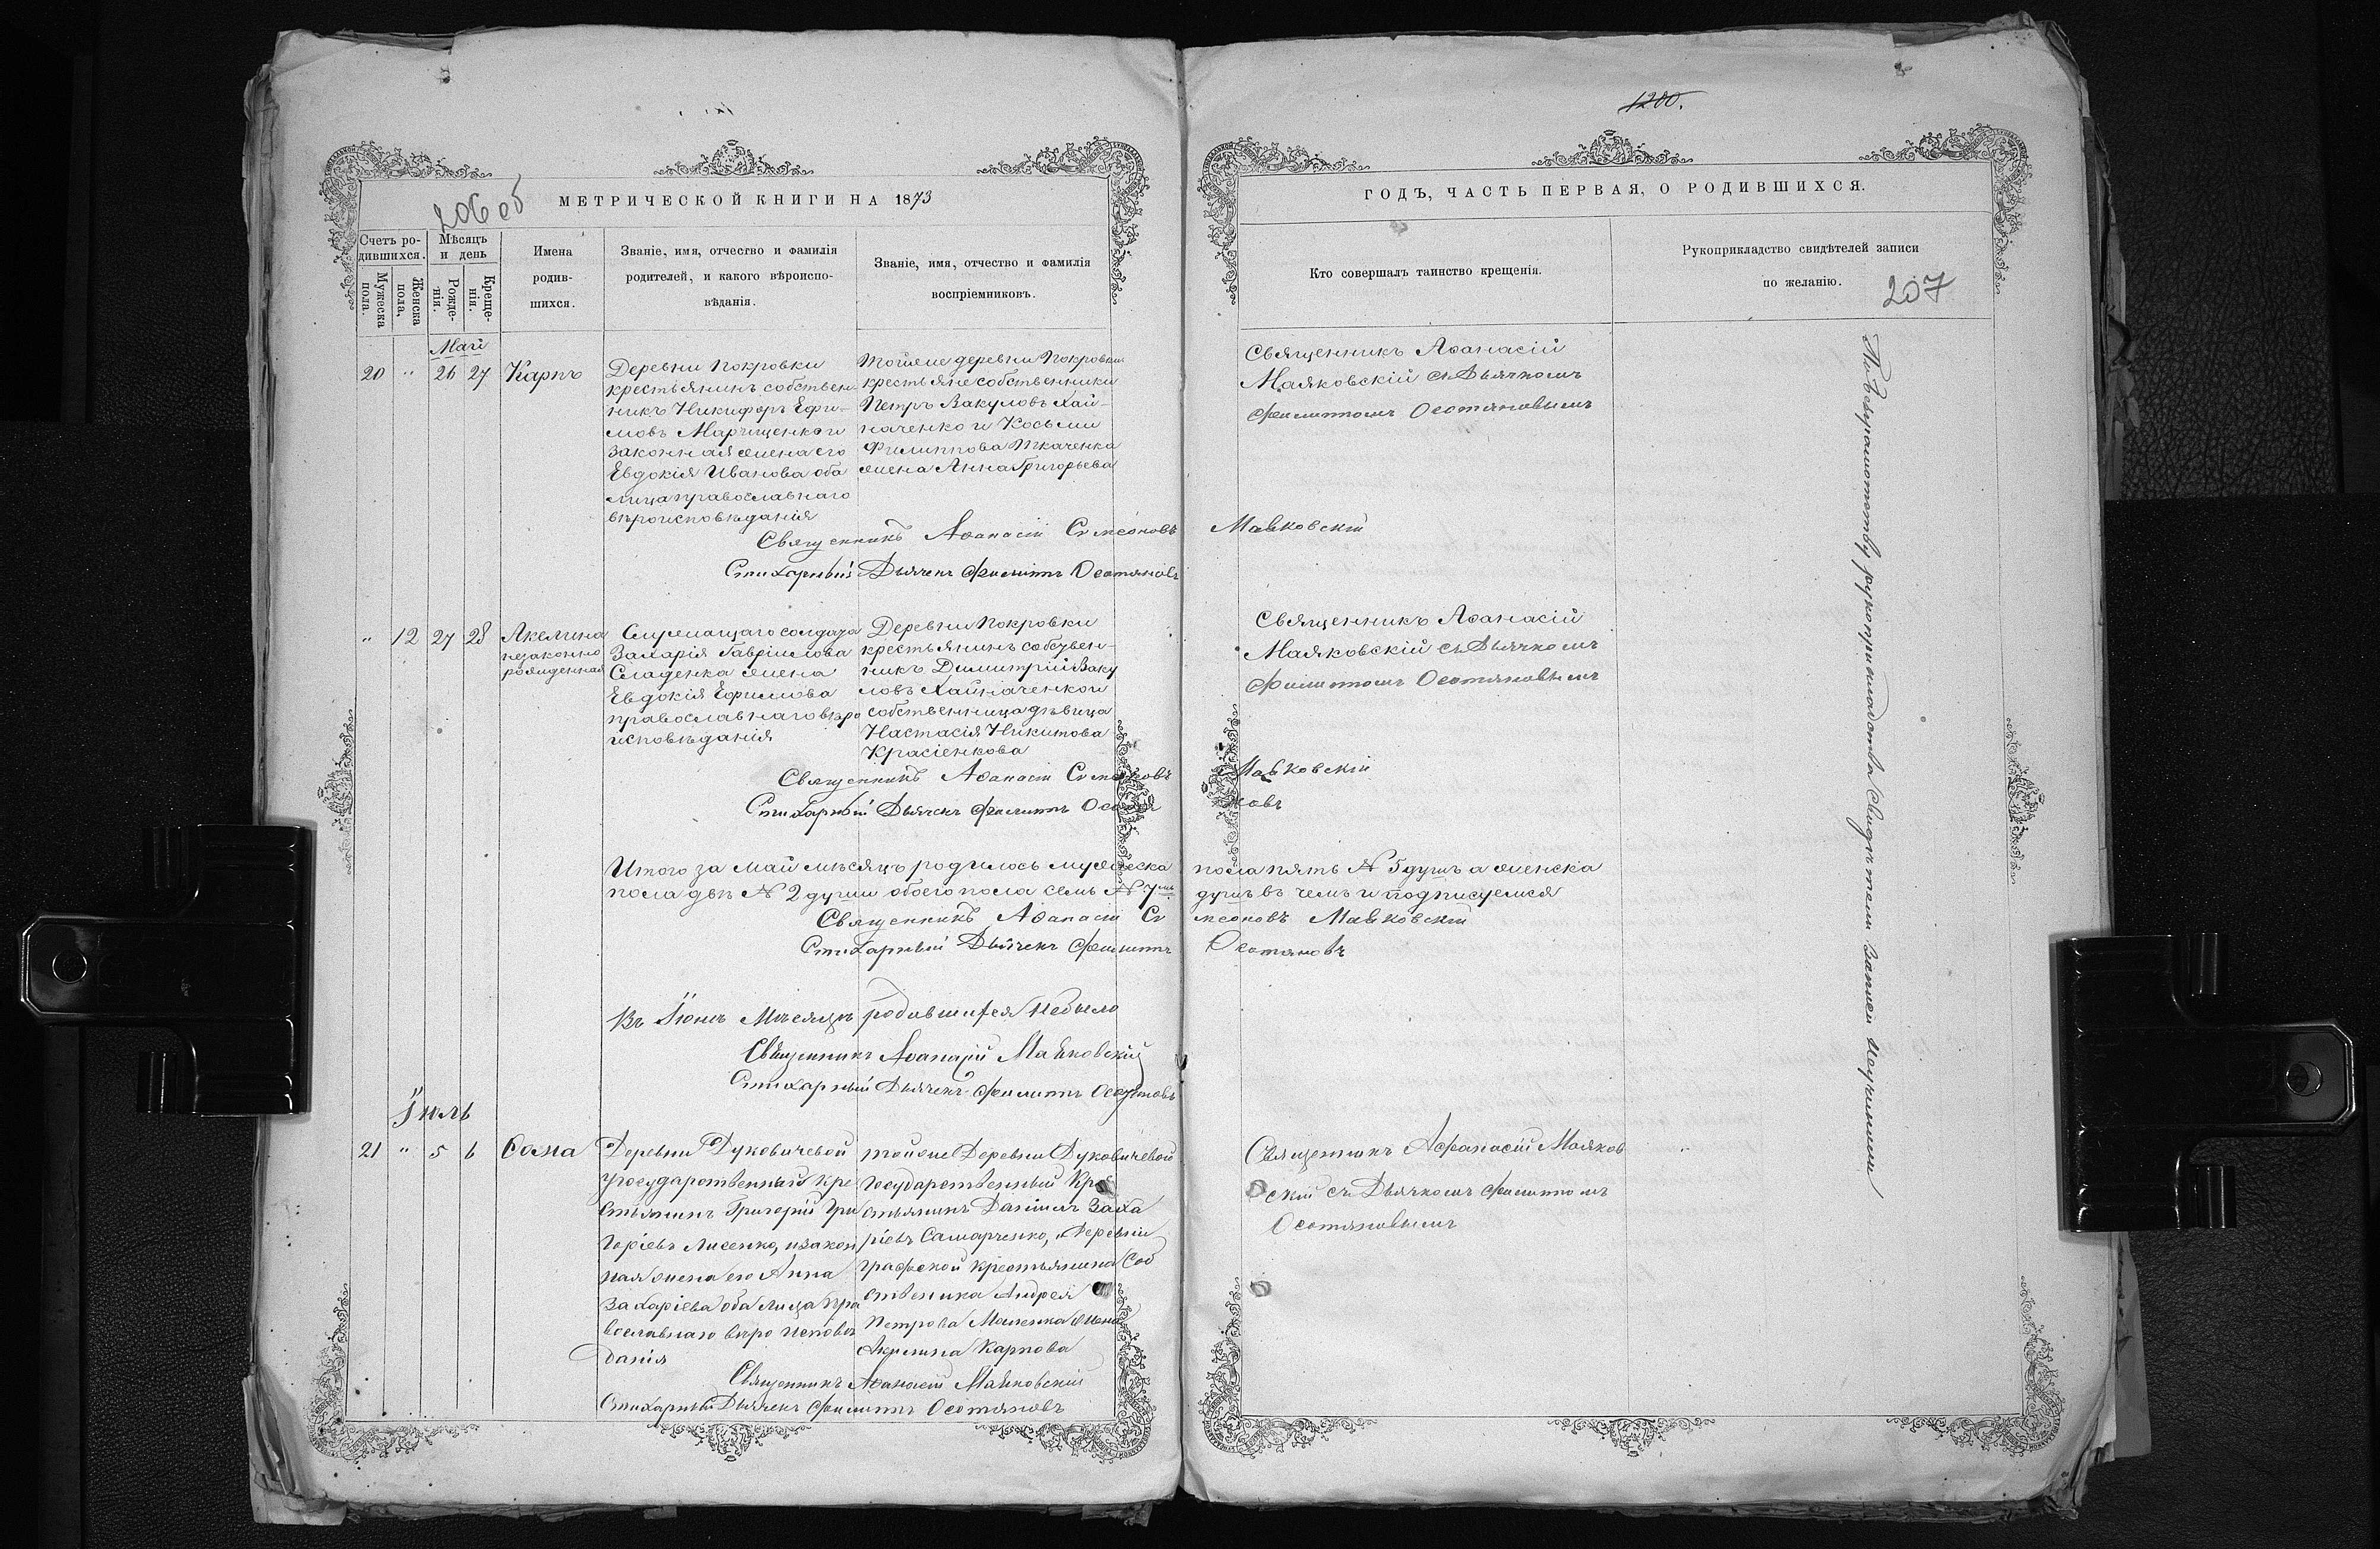 1200.
206 об
МЕТРИЧЕСКОЙ КНИГИ НА 1873
ГОДЪ, ЧАСТЬ ПЕРВАЯ, О РОДИВШИХСЯ.
Счетъ ро-
дившихся.
Мужеска
пола.
Женска
пола,
Мѣсяцъ
и день
Рожде-
нія.
Креще-
нія.
Имена
родив-
шихся.
Званіе, имя, отчество и фамилія
родителей, и какого вѣроиспо-
вѣданія.
Званіе, имя, отчество и фамилія
воспріемниковъ.
Кто совершалъ таинство крещенія.
Рукоприкладство свидѣтелей записи
по желанію.
207
Май
20 " 26 27 Карпъ
Деревни Покровки
крестьянинъ собствен-
никъ Никифоръ Ефи-
мовъ Марищенко и
законная жена его
Евдокія Иванова оба
лица православнаго
вѣроисповѣданія
Тойже деревни Покровки
крестьяне собственники
Петръ Вакуловъ Хай-
наченко и Косьми
Филиппова Ткаченка
жена Анна Григорьева
Священникъ Аѳанасій
Маяковскій съ Дьячкомъ
Филиппомъ Осотяновымъ
Священникъ Аѳанасій Симеоновъ Маяковскій
Стихарный Дьячекъ Филиппъ Осотяновъ
" 12 27 28 Акелина
незаконно
рожденная
Служащаго солдата
Захарія Гавріилова
Сладенка жена
Евдокія Ефимова
православнаго вѣро
исповѣданія
Деревни Покровки
крестьянинъ собствен-
никъ Димитрій Ваку
ловъ Хайначенко и
собственница дѣвица
Настасія Никитова
Красіенкова
Священникъ Аѳанасій
Маяковскій съ Дьячкомъ
Филиппомъ Осотяновымъ
Священникъ Аѳанасій Симеоновъ Маяковскій
Стихарный Дьячекъ Филиппъ Осотяновъ
Итого за май мѣсяцъ родилось мужеска пола пять № 5 душъ а женска
пола двѣ № 2 души обоего пола семь № 7мь душъ въ чемъ и подписуемся
Священникъ Аѳанасій Симеоновъ Маяковскій
Стихарный Дьячекъ Филиппъ Осотяновъ
Въ Іюнѣ Мѣсяцѣ родившихся небыло
Священникъ Аѳанасій Маяковскій
Стихарный Дьячекъ Филиппъ Осотяновъ
Іюль
21 " 5 6 Сава
Деревни Дуковичевой
государственный кре
стьянинъ Григорій Гри
горіевъ Лисенко, и закон
ная жена его Анна
Захаріева оба лица пра
вославнаго вѣро исповѣ
данія
тойже Деревни Дуковичевой
государственный Кре
стьянинъ Даніилъ Заха
ріевъ Самарченко, и Деревни
графской крестьянина Соб
ственика Андрея
Петрова Маленка жена
Акилина Карпова
Священникъ Афанасій Маяков
скій съ Дьячкомъ Филиппомъ
Осотяновымъ
Священникъ Аѳанасій Маяковскій
Стихарный Дьячекъ Филиппъ Осотяновъ
По безграмотству рукоприкладства свидѣтели записи неучинили